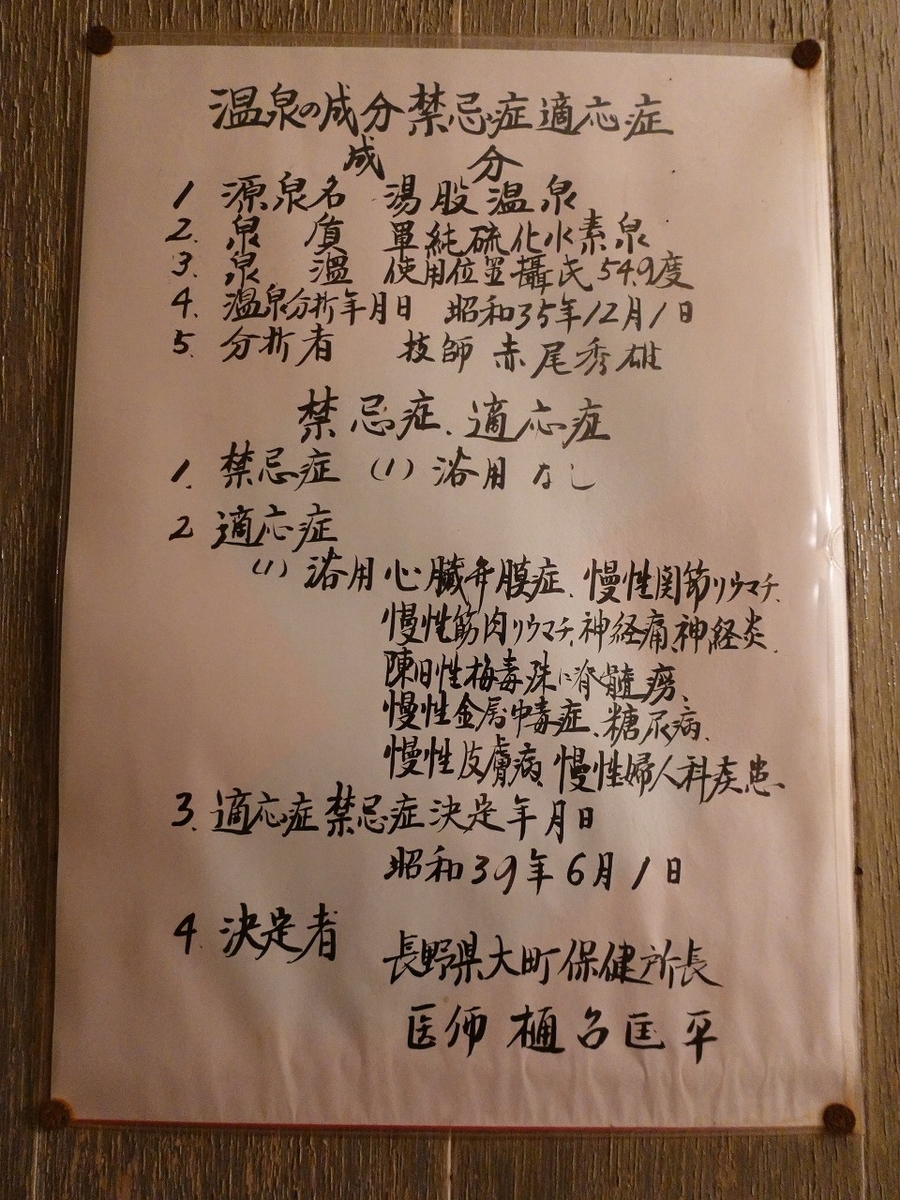 温泉の成分禁忌症適応症
成 分
1 源泉名 湯股温泉
2. 泉 質 單純硫化水素泉
3. 泉 温 使用位置攝氏54.9度
4. 温泉分折年月日 昭和35年12月1日
5. 分折者 技師 赤尾秀雄
禁忌症、適応症
1. 禁忌症 (1) 浴用 なし
2 適応症
(1) 浴用 心臓弁膜症、慢性関節リウマチ、
慢性筋肉リウマチ、神経痛、神経炎、
陳旧性梅毒殊に脊髄癆、
慢性金属中毒症、糖尿病、
慢性皮膚病、慢性婦人科疾患、
3. 適応症禁忌症決定年月日
昭和39年6月1日
4. 決定者
長野県大町保健所長
医師 樋口匡平